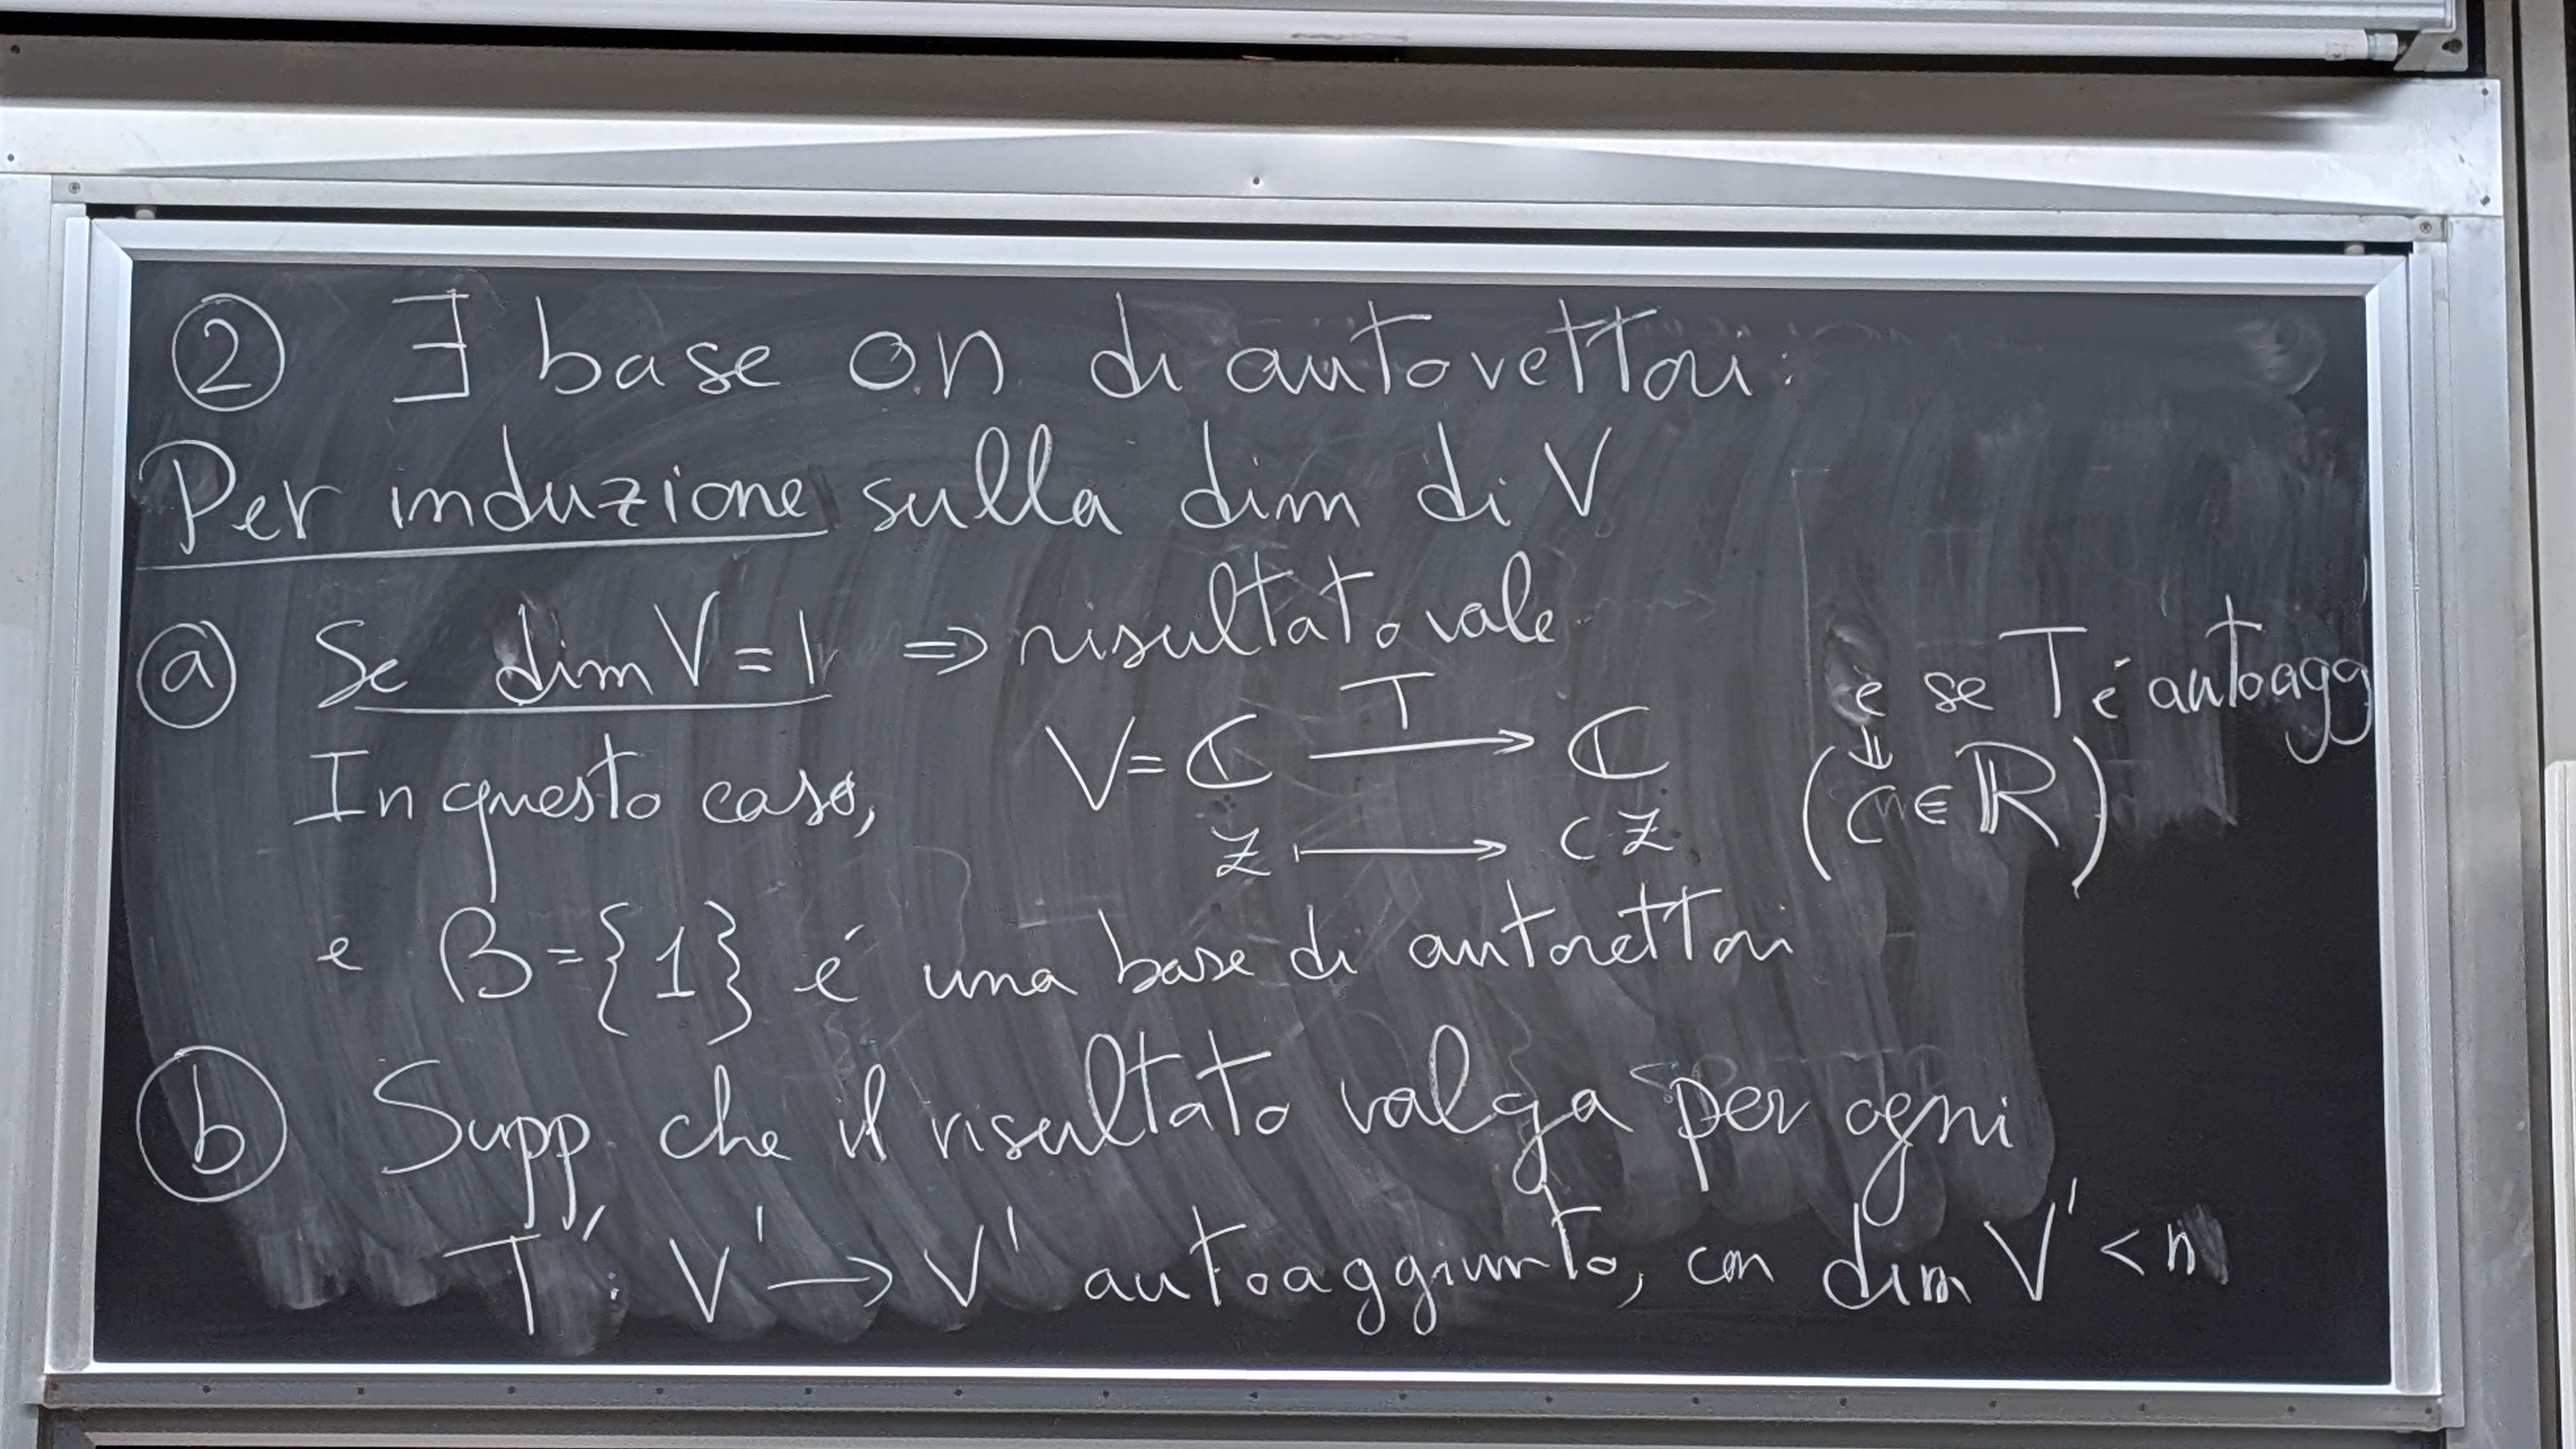 ② ∃ base on di autovettori:
Per induzione sulla dim di V
ⓐ Se dim V = 1 ⇒ risultato vale
e se T é autoagg
⇓
In questo caso, V = ℂ T⟶ ℂ (c ∈ ℝ)
z ⟼ c z
e B = {1} é una base di autovettori
ⓑ Supp. che il risultato valga per ogni
T' : V' → V' autoaggiunto, con dim V' < n